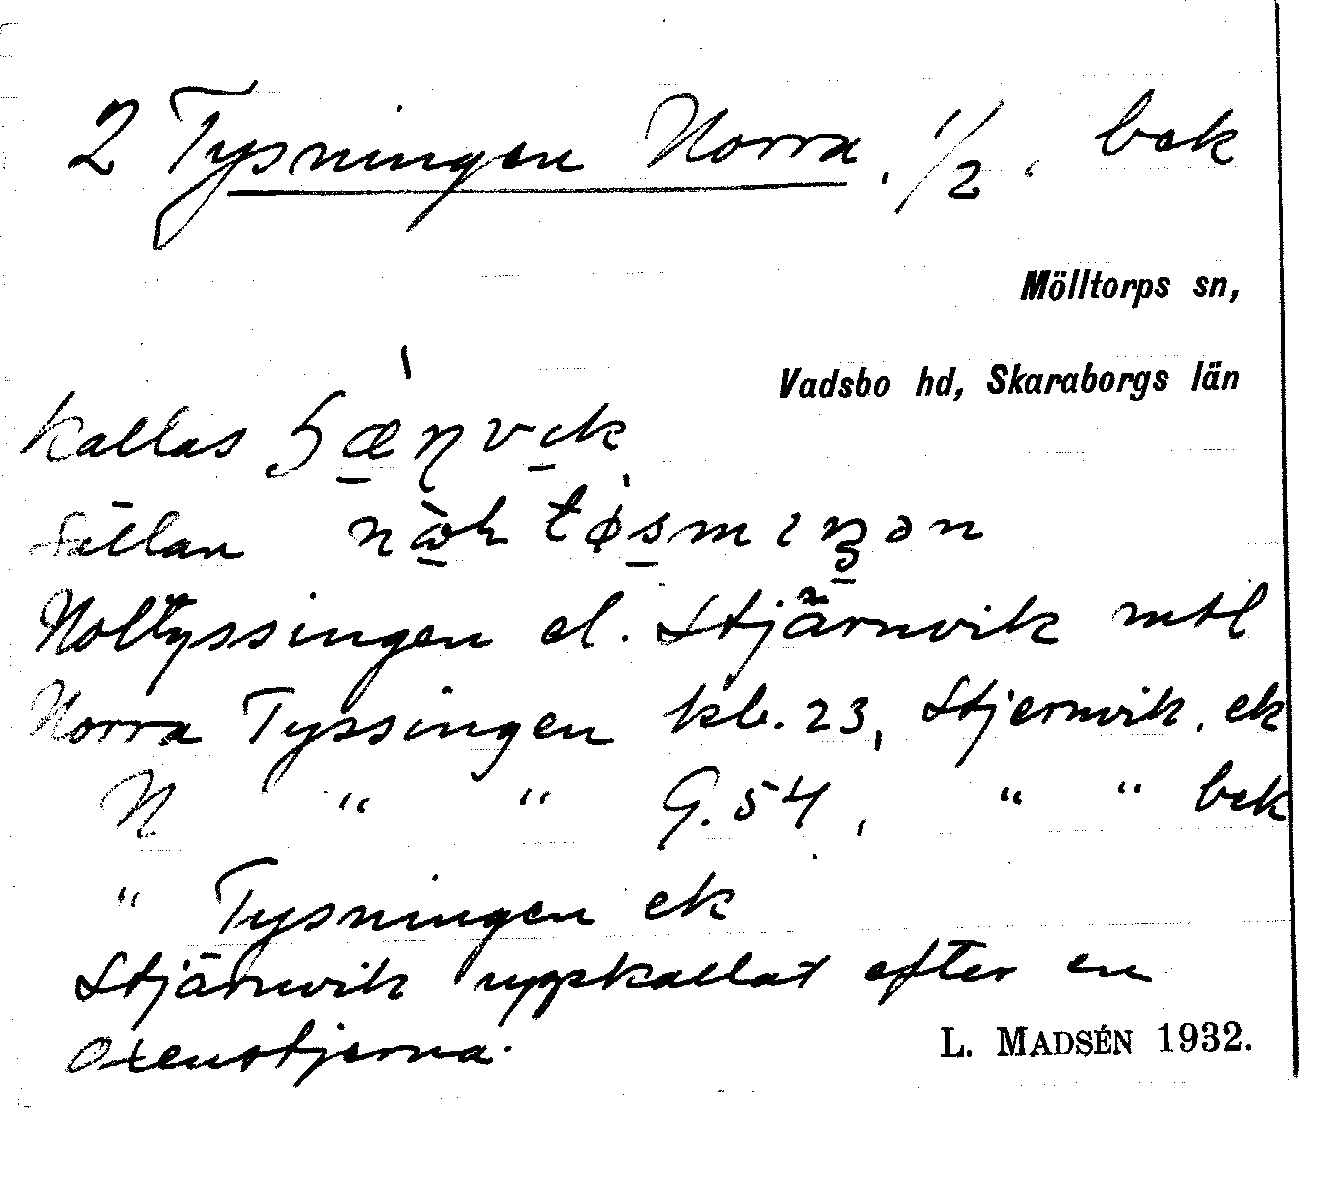 2 Tysningen Norra . 1/2 . bek
Mölltorps sn,
Vadsbo hd, Skaraborgs län
kallas
Sällan
Noltyssingen el. Stjärnvik mtl
Norra Tyssingen kb. 23, Stjernvik. ek
N " " G. 54, " " bek
" Tysningen ek
Stjärnvik uppkallat efter en
Oxenstjerna.
L. MADSÉN 1932.